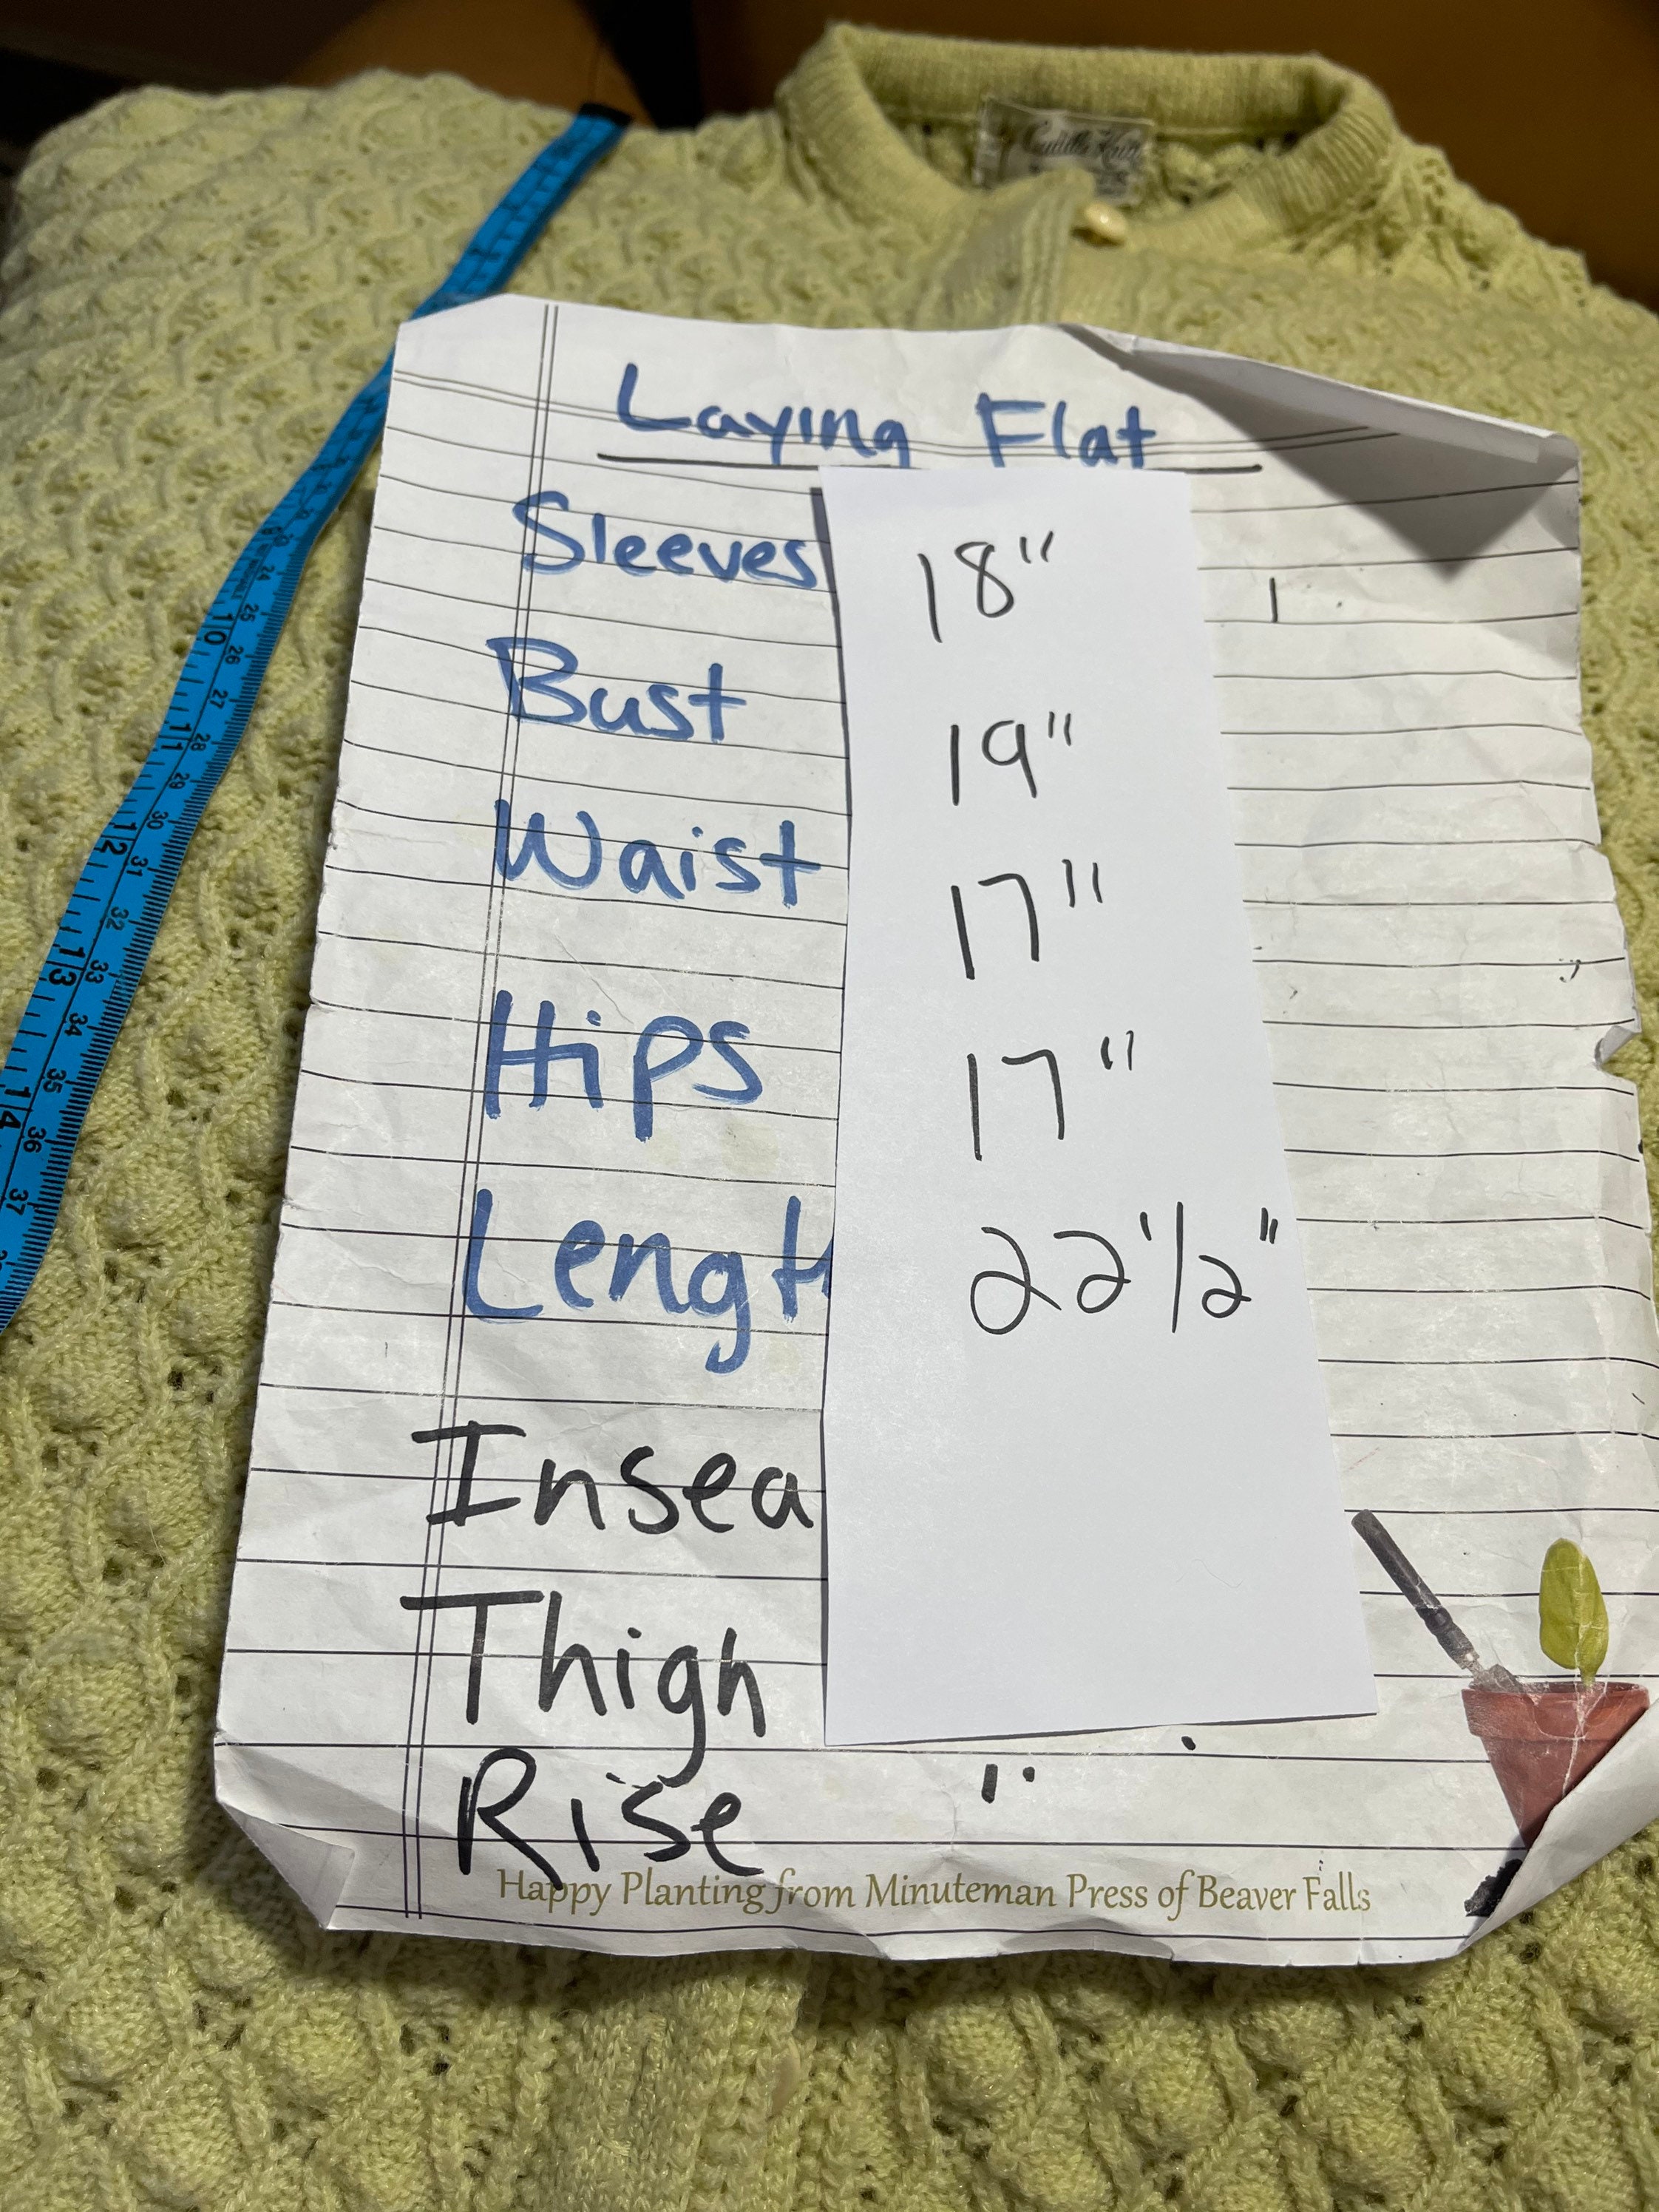 Laying Flat
Sleeves 18"
Bust 19"
Waist 17"
Hips 17"
Length 22 1/2"
Insea
Thigh
Rise
Happy Planting from Minuteman Press of Beaver Falls
10
11
12
13
14
24
25
26
27
28
29
30
31
32
33
34
35
36
37